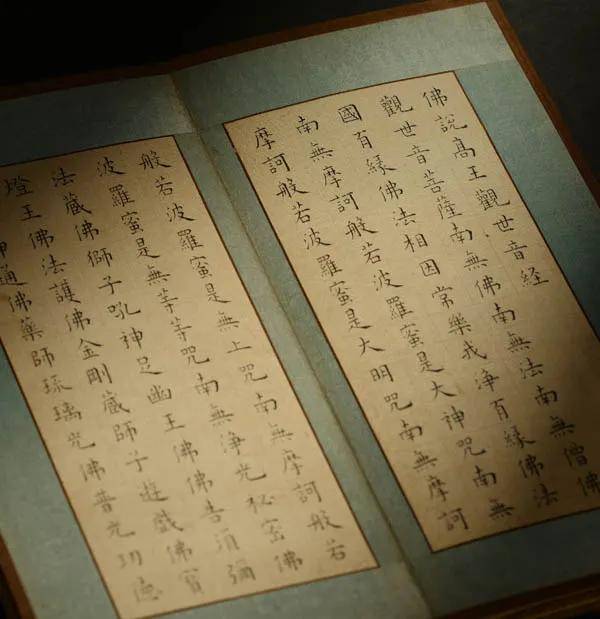 佛說高王觀世音経
觀世音菩薩南無佛南無法南無僧佛
國有緣佛法相因常樂我淨有緣佛法
南無摩訶般若波羅蜜是大神咒南無
摩訶般若波羅蜜是大明咒南無摩訶
般若波羅蜜是無上咒南無摩訶般若
波羅蜜是無等等咒南無淨光秘密佛
法藏佛獅子吼神足幽王佛佛告須彌
燈王佛法護佛金剛藏師子遊戲佛寶
神通佛藥師琉璃光佛普光功德